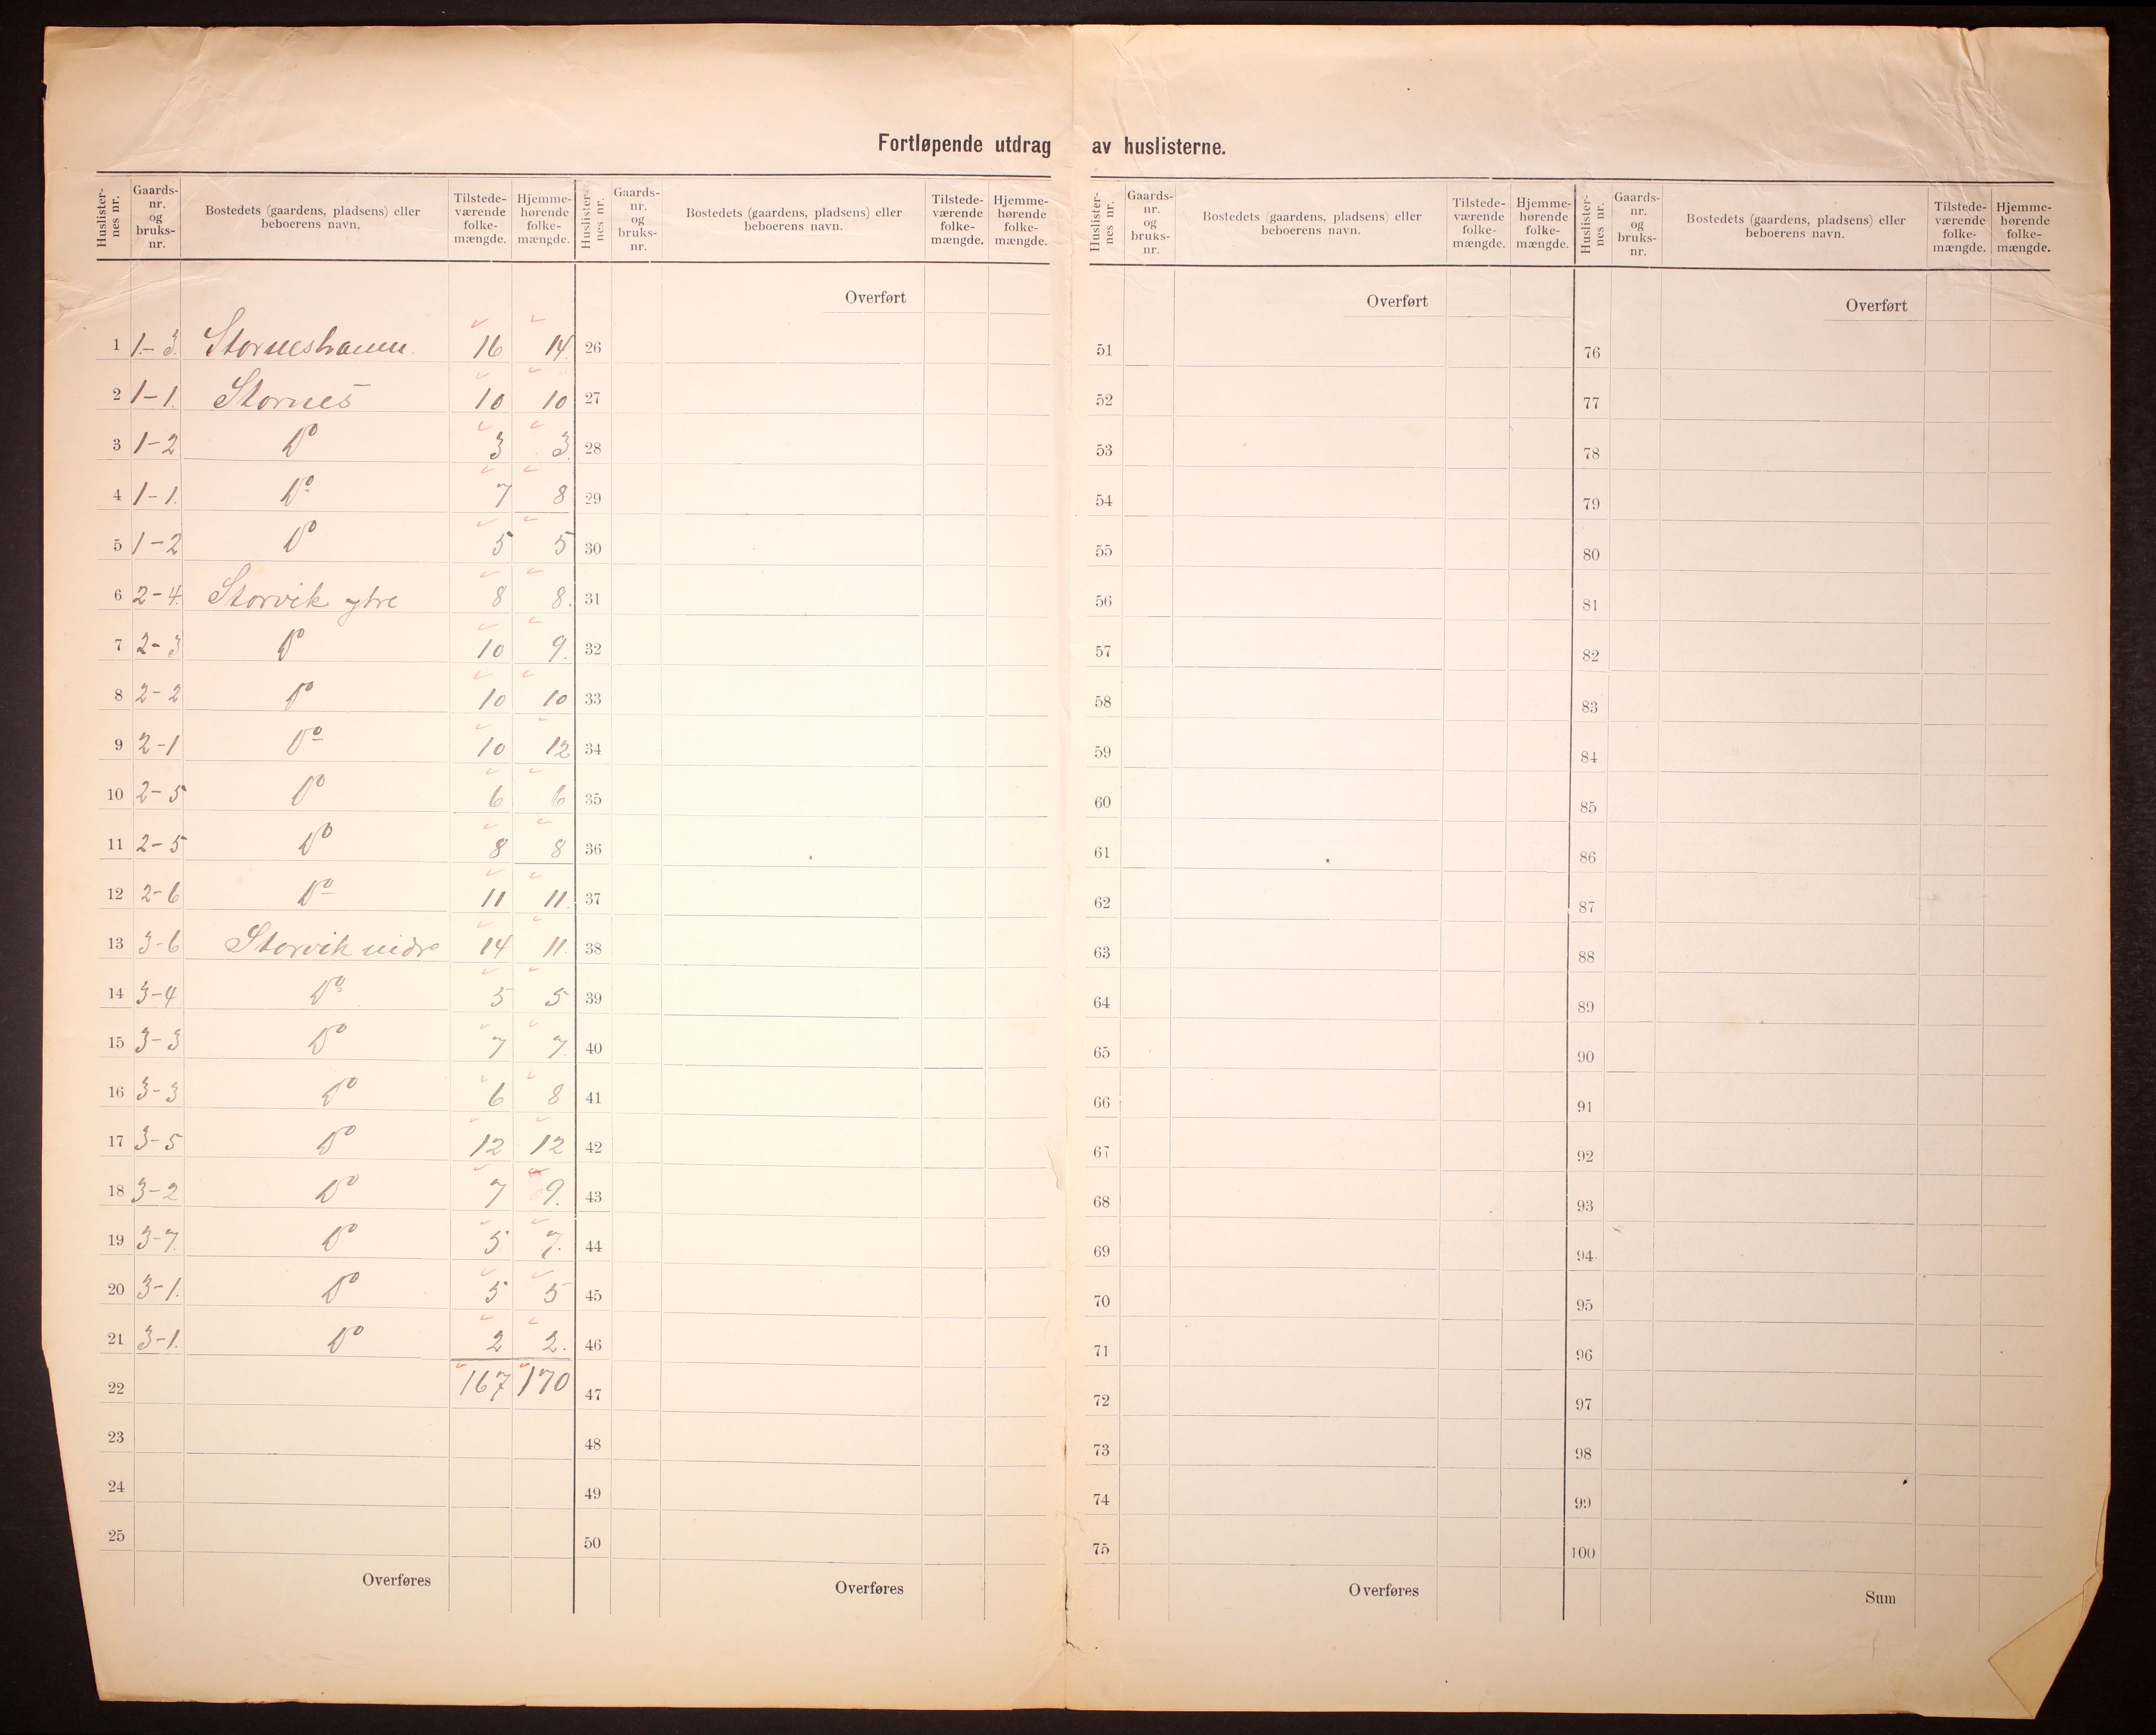 Fortløpende utdrag av huslisterne.
Huslister-nes nr. Gaards-nr. og bruks-nr. Bostedets (gaardens, pladsens) eller beboerens navn. Tilstede-værende folke-mængde. Hjemme-hørende folke-mængde.
1 1-3. Storneshavn. 16 14.
2 1-1. Stornes 10 10
3 1-2 Do 3 3.
4 1-1. Do 7 8
5 1-2 Do 5 5
6 2-4. Storvik ytre 8 8.
7 2-3 Do 10 9.
8 2-2 Do 10 10
9 2-1 Do 10 12
10 2-5 Do 6 6
11 2-5 Do 8 8
12 2-6 Do 11 11.
13 3-6 Storvik indre 14 11.
14 3-4 Do 5 5
15 3-3 Do 7 7.
16 3-3 Do 6 8
17 3-5 Do 12 12
18 3-2 Do 7 9.
19 3-7. Do 5 7.
20 3-1. Do 5 5
21 3-1. Do 2 2.
22 167 170
23
24
25
Overføres
Huslister-nes nr. Gaards-nr. og bruks-nr. Bostedets (gaardens, pladsens) eller beboerens navn. Tilstede-værende folke-mængde. Hjemme-hørende folke-mængde.
Overført
26
27
28
29
30
31
32
33
34
35
36
37
38
39
40
41
42
43
44
45
46
47
48
49
50
Overføres
Huslister-nes nr. Gaards-nr. og bruks-nr. Bostedets (gaardens, pladsens) eller beboerens navn. Tilstede-værende folke-mængde. Hjemme-hørende folke-mængde.
Overført
51
52
53
54
55
56
57
58
59
60
61
62
63
64
65
66
67
68
69
70
71
72
73
74
75
Overføres
Huslister-nes nr. Gaards-nr. og bruks-nr. Bostedets (gaardens, pladsens) eller beboerens navn. Tilstede-værende folke-mængde. Hjemme-hørende folke-mængde.
Overført
76
77
78
79
80
81
82
83
84
85
86
87
88
89
90
91
92
93
94
95
96
97
98
99
100
Sum